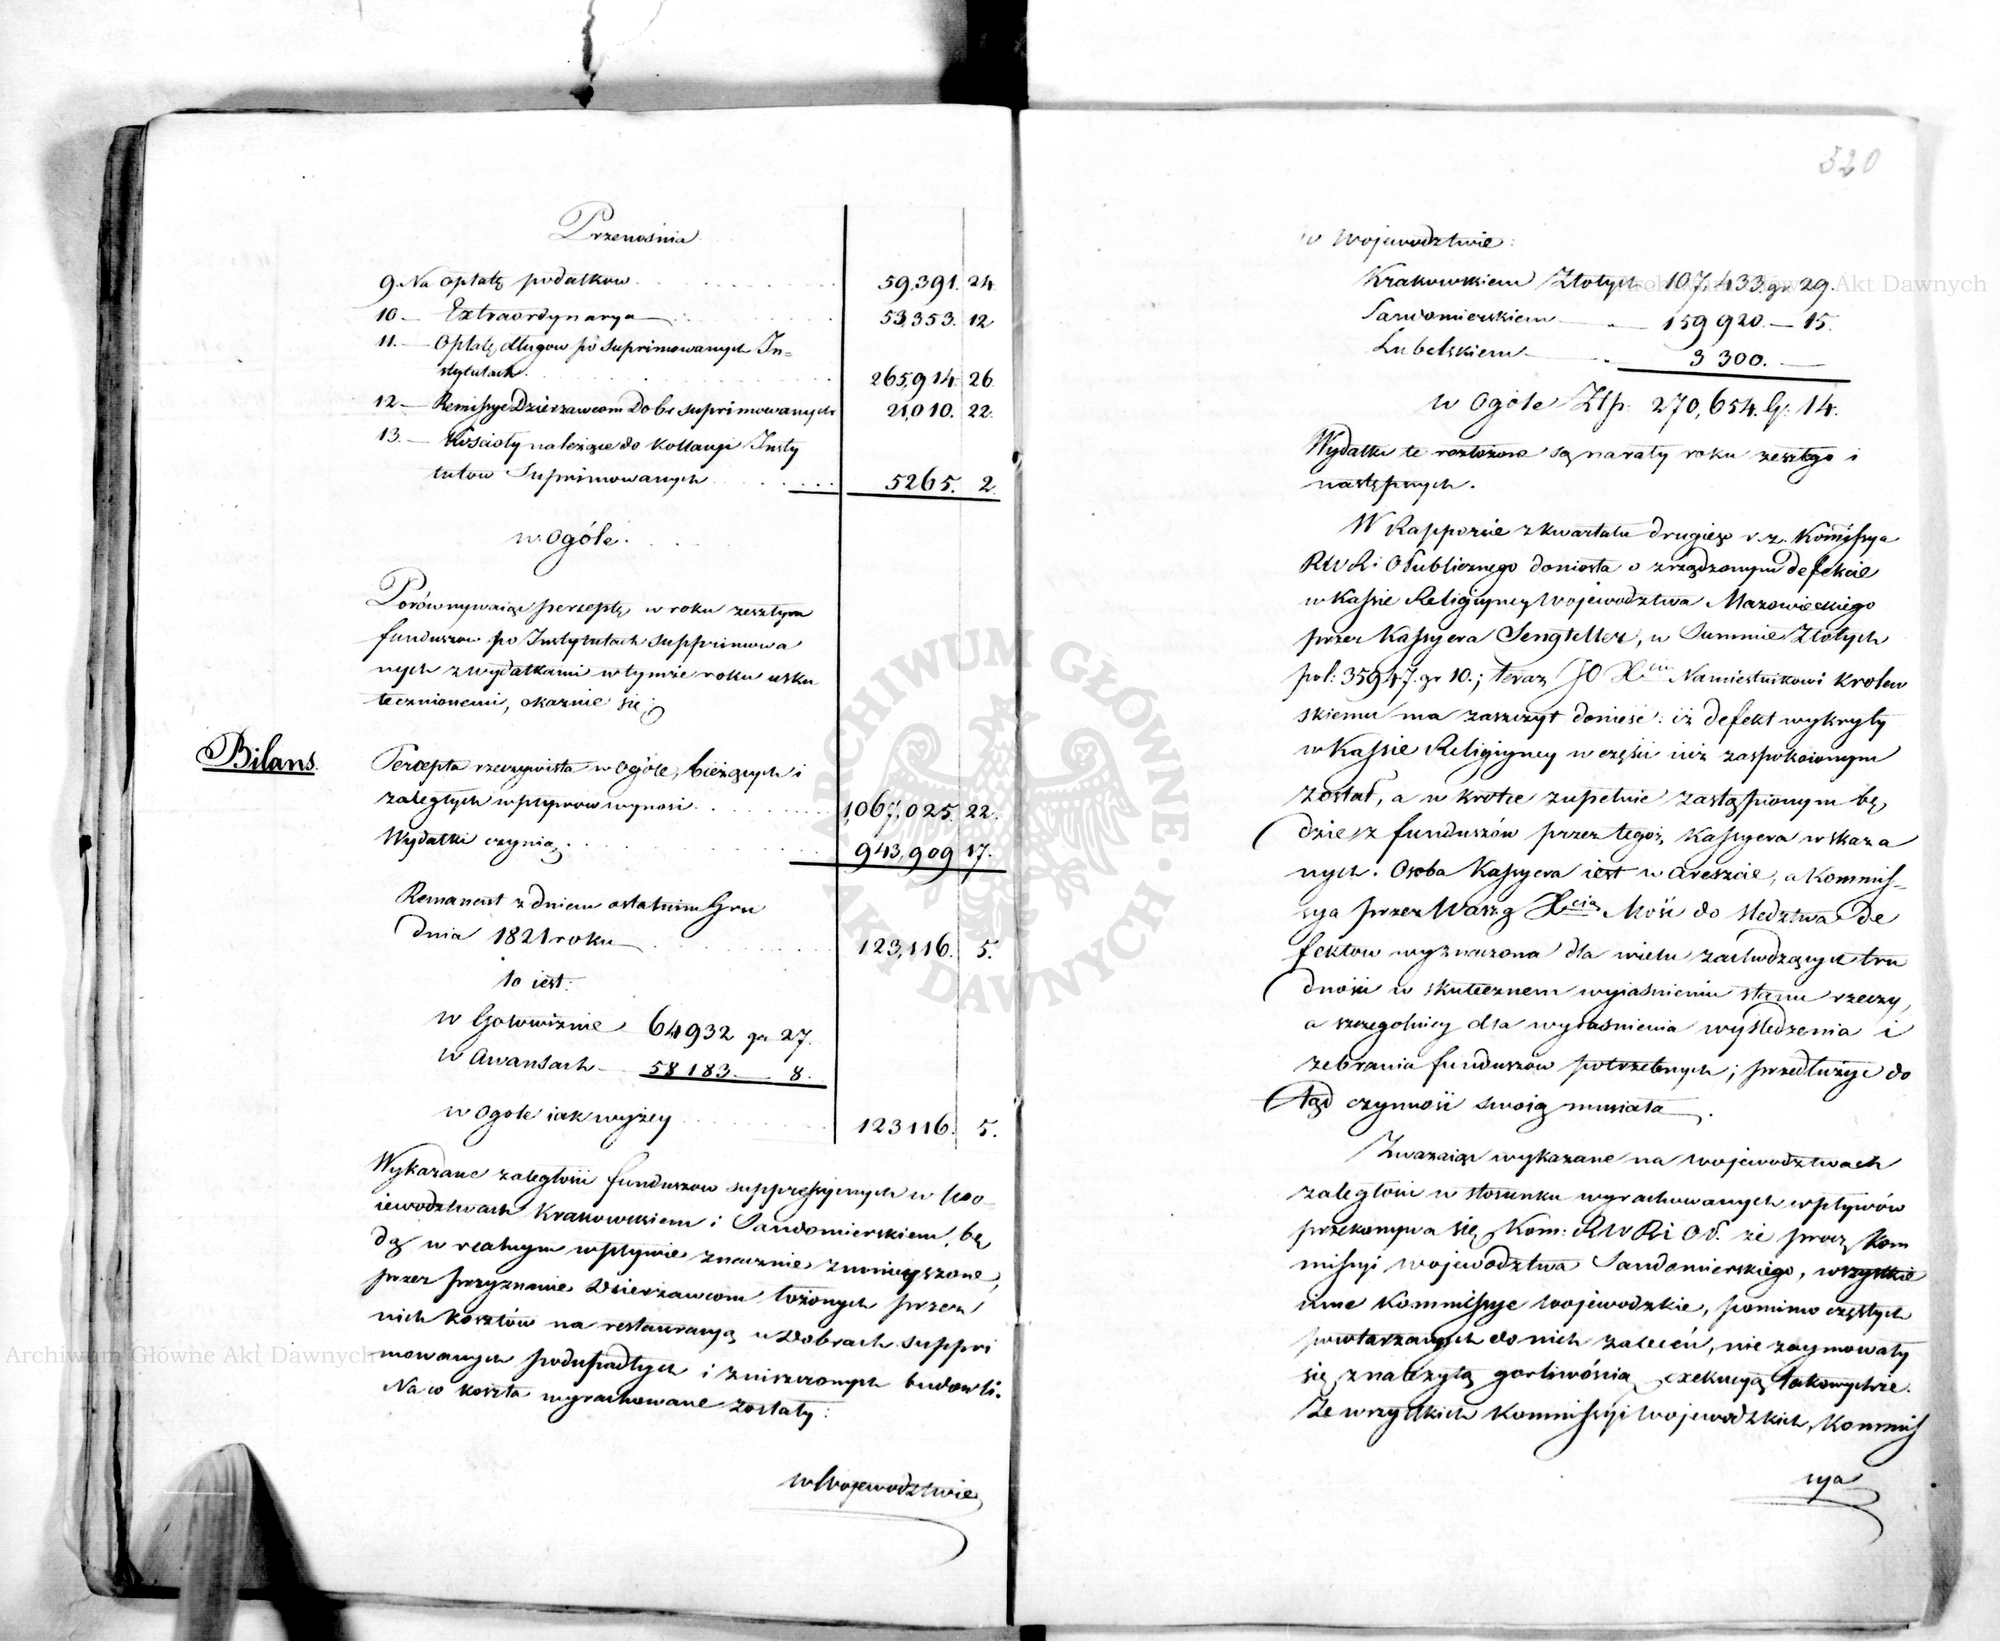 Przenośnia
9. Na opłatę podatkow 59,391. 24.
10 — Extraordynarya 53,353. 12
11. — Opłatę długow po suprimowanych In=
stytutach 265,914. 26.
12 — Remissye Dzierzawcom Dobr suprimowanych 21,010. 22.
13. — Kościoły należące do kollacyi Insty
tutow Suprimowanych 5265. 2.
w Ogóle.
Porównywaiąc perceptę w roku zeszłym
funduszow po Instytutach supprimowa
nych z wydatkami w tymże roku usku
tecznionemi, okaznie się:
Bilans.
Percepta rzeczywista w Ogóle, bieżących i
zaległych wpływow wynosi 1,067,025. 22.
Wydatki czynią 943,909 17.
Remanent z dniem ostatnim Gru
dnia 1821 roku 123,116. 5.
to iest:
w Gotowiznie 64932 gr 27.
w Awansach — 58183 — 8.
w Ogole iak wyżey 123116. 5.
Wykazane zaległości funduszow suppressyinych w Wo=
iewodztwach Krakowskiem i Sandomierskiem, bę
dą w realnym wpływie znacznie zmnieyszone,
przez przyznanie Dzierzawcom łożonych przez
nich kosztów na restauracyą w Dobrach suppri
mowanych podupadłych i zniszczonych budowli.
Na co koszta wyrachowane zostały:
w Wojewodztwie
320
w Wojewodztwie:
Krakowskiem Złotych 107,433. gr 29.
Sandomierskiem — 159920. — 15.
Lubelskiem — 3300. —
w Ogóle Złp. 270,654. Gr. 14.
Wydatki te rozłożone są na raty roku zeszłego i
następnych.
W Rapporcie z kwartału drugiego r. z. Kommissya
RWR i O Publicznego doniosła o zrządzonym defekcie
w Kassie Religiyney Wojewodztwa Mazowieckiego
przez Kassyera Sengteller, w Summie Złotych
pol: 35947. gr 10.; teraz JO Xciu Namiestnikowi Krolew
skiemu ma zaszczyt donieść: iż defekt wykryty
w Kassie Religiyney w części iuż zaspokoionym
został, a w krotce zupełnie zastąpionym bę
dzie z funduszów przez tegoż Kassyera wskaza
nych. Osoba Kassyera iest w Areszcie, a Kommis=
sya przez Waszą Xcią Mość do śledztwa De
fektow wyznaczona dla wielu zachodzących tru
dności w skutecznem wyiaśnieniu stanu rzeczy,
a szczegolniey dla wyiaśnienia wyśledzenia i
zebrania funduszow potrzebnych; przedłużyć do
tąd czynność swoią musiała.
Zwazaiąc wykazane na Wojewodztwach
zaległości w stosunku wyrachowanych wpływów
przekonywa się Kom: RWR i OP. że procz Kom
missyi Wojewodztwa Sandomierskiego, wszystkie
inne Kommissye Wojewodzkie, pomimo częstych
powtarzanych do nich zaleceń, nie zaymowały
się z należytą gorliwością exekucyą takowychże.
Ze wszystkich Kommissyi Wojewodzkich, Kommis
sya
Archiwum Główne Akt Dawnych
ARCHIWUM GŁÓWNE • AKT DAWNYCH
Archiwum Główne Akt Dawnych